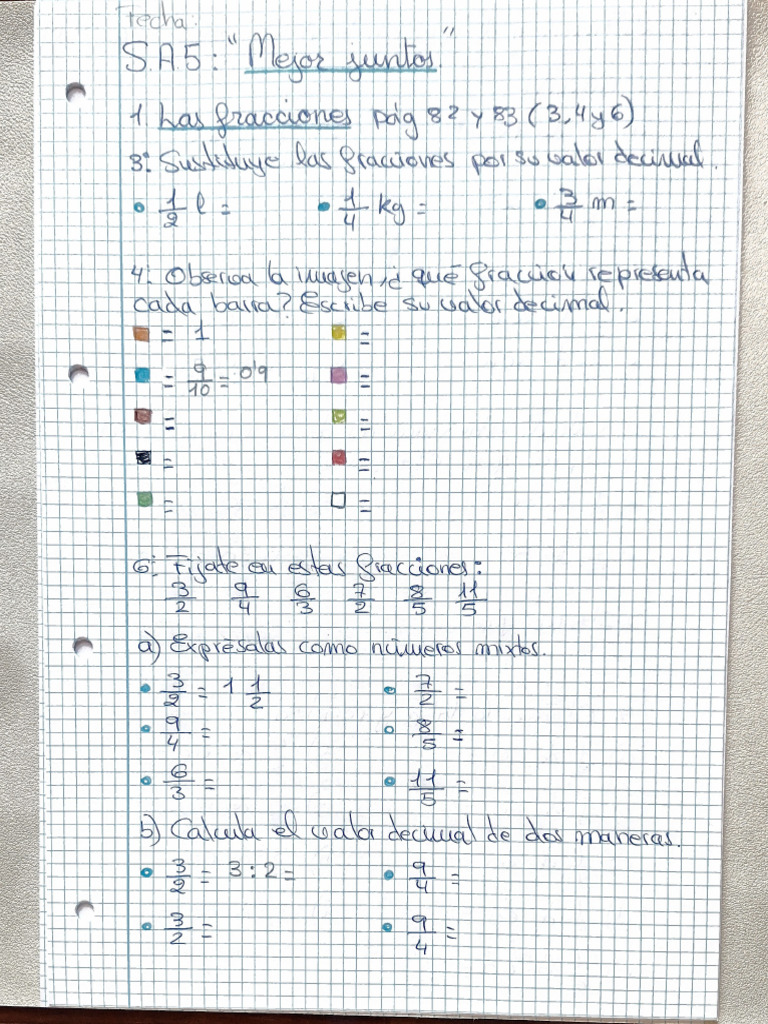 Fecha:
S.A5: "Mejor juntos."
1. Las fracciones pág 82 y 83 (3, 4 y 6)
3: Sustituye las fracciones por su valor decimal.
• 1/2 l = • 1/4 kg = • 3/4 m =
4: Observa la imagen, ¿ qué fracción representa
cada barra? Escribe su valor decimal.
= 1 =
= 9/10 = 0'9 =
= =
= =
= =
6: Fíjate en estas fracciones:
3/2 9/4 6/3 7/2 8/5 11/5
a) Exprésalas como números mixtos.
• 3/2 = 1 1/2 • 7/2 =
• 9/4 = • 8/5 =
• 6/3 = • 11/5 =
b) Calcula el valor decimal de dos maneras.
• 3/2 = 3:2 = • 9/4 =
• 3/2 = • 9/4 =